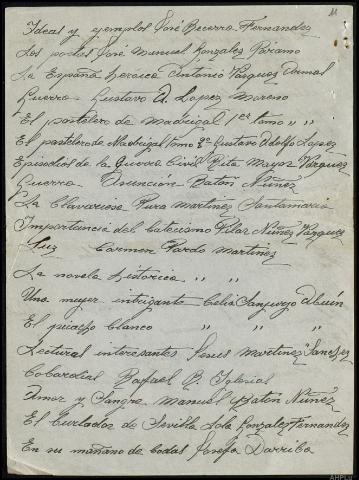 11
Ideas y ejemplos José Becerra Fernandez
Los poetas José Manuel Gonzalez
La España heroica Antonio Vazquez
Guerra - Gustavo A. Lopez Moreno
El pastelero de Madrigal 1er tomo " "
El pastelero de Madrigal tomo 2º Gustavo Adolfo Lopez
Episodios de la Guerra Civil Rita Mayor Vazquez
Guerra Asunción Batón Nuñez
La Clavariesa Pura Martinez Santamaria
Importancia del Catecismo Pilar Nuñez Vazquez
Luz Carmen Pardo Martinez
La novela historica " "
Una mujer intrigante Celia Sanjurjo
El penacho blanco " " "
Lecturas interesantes Jesus Martinez Sanchez
Cobardias Raffael R. Iglesias
Amor y Sangre Manuel Batón Nuñez
El burlador de Sevilla Lola Gonzalez Fernandez
En su mañana de bodas Josefa Darriba
AHPLU